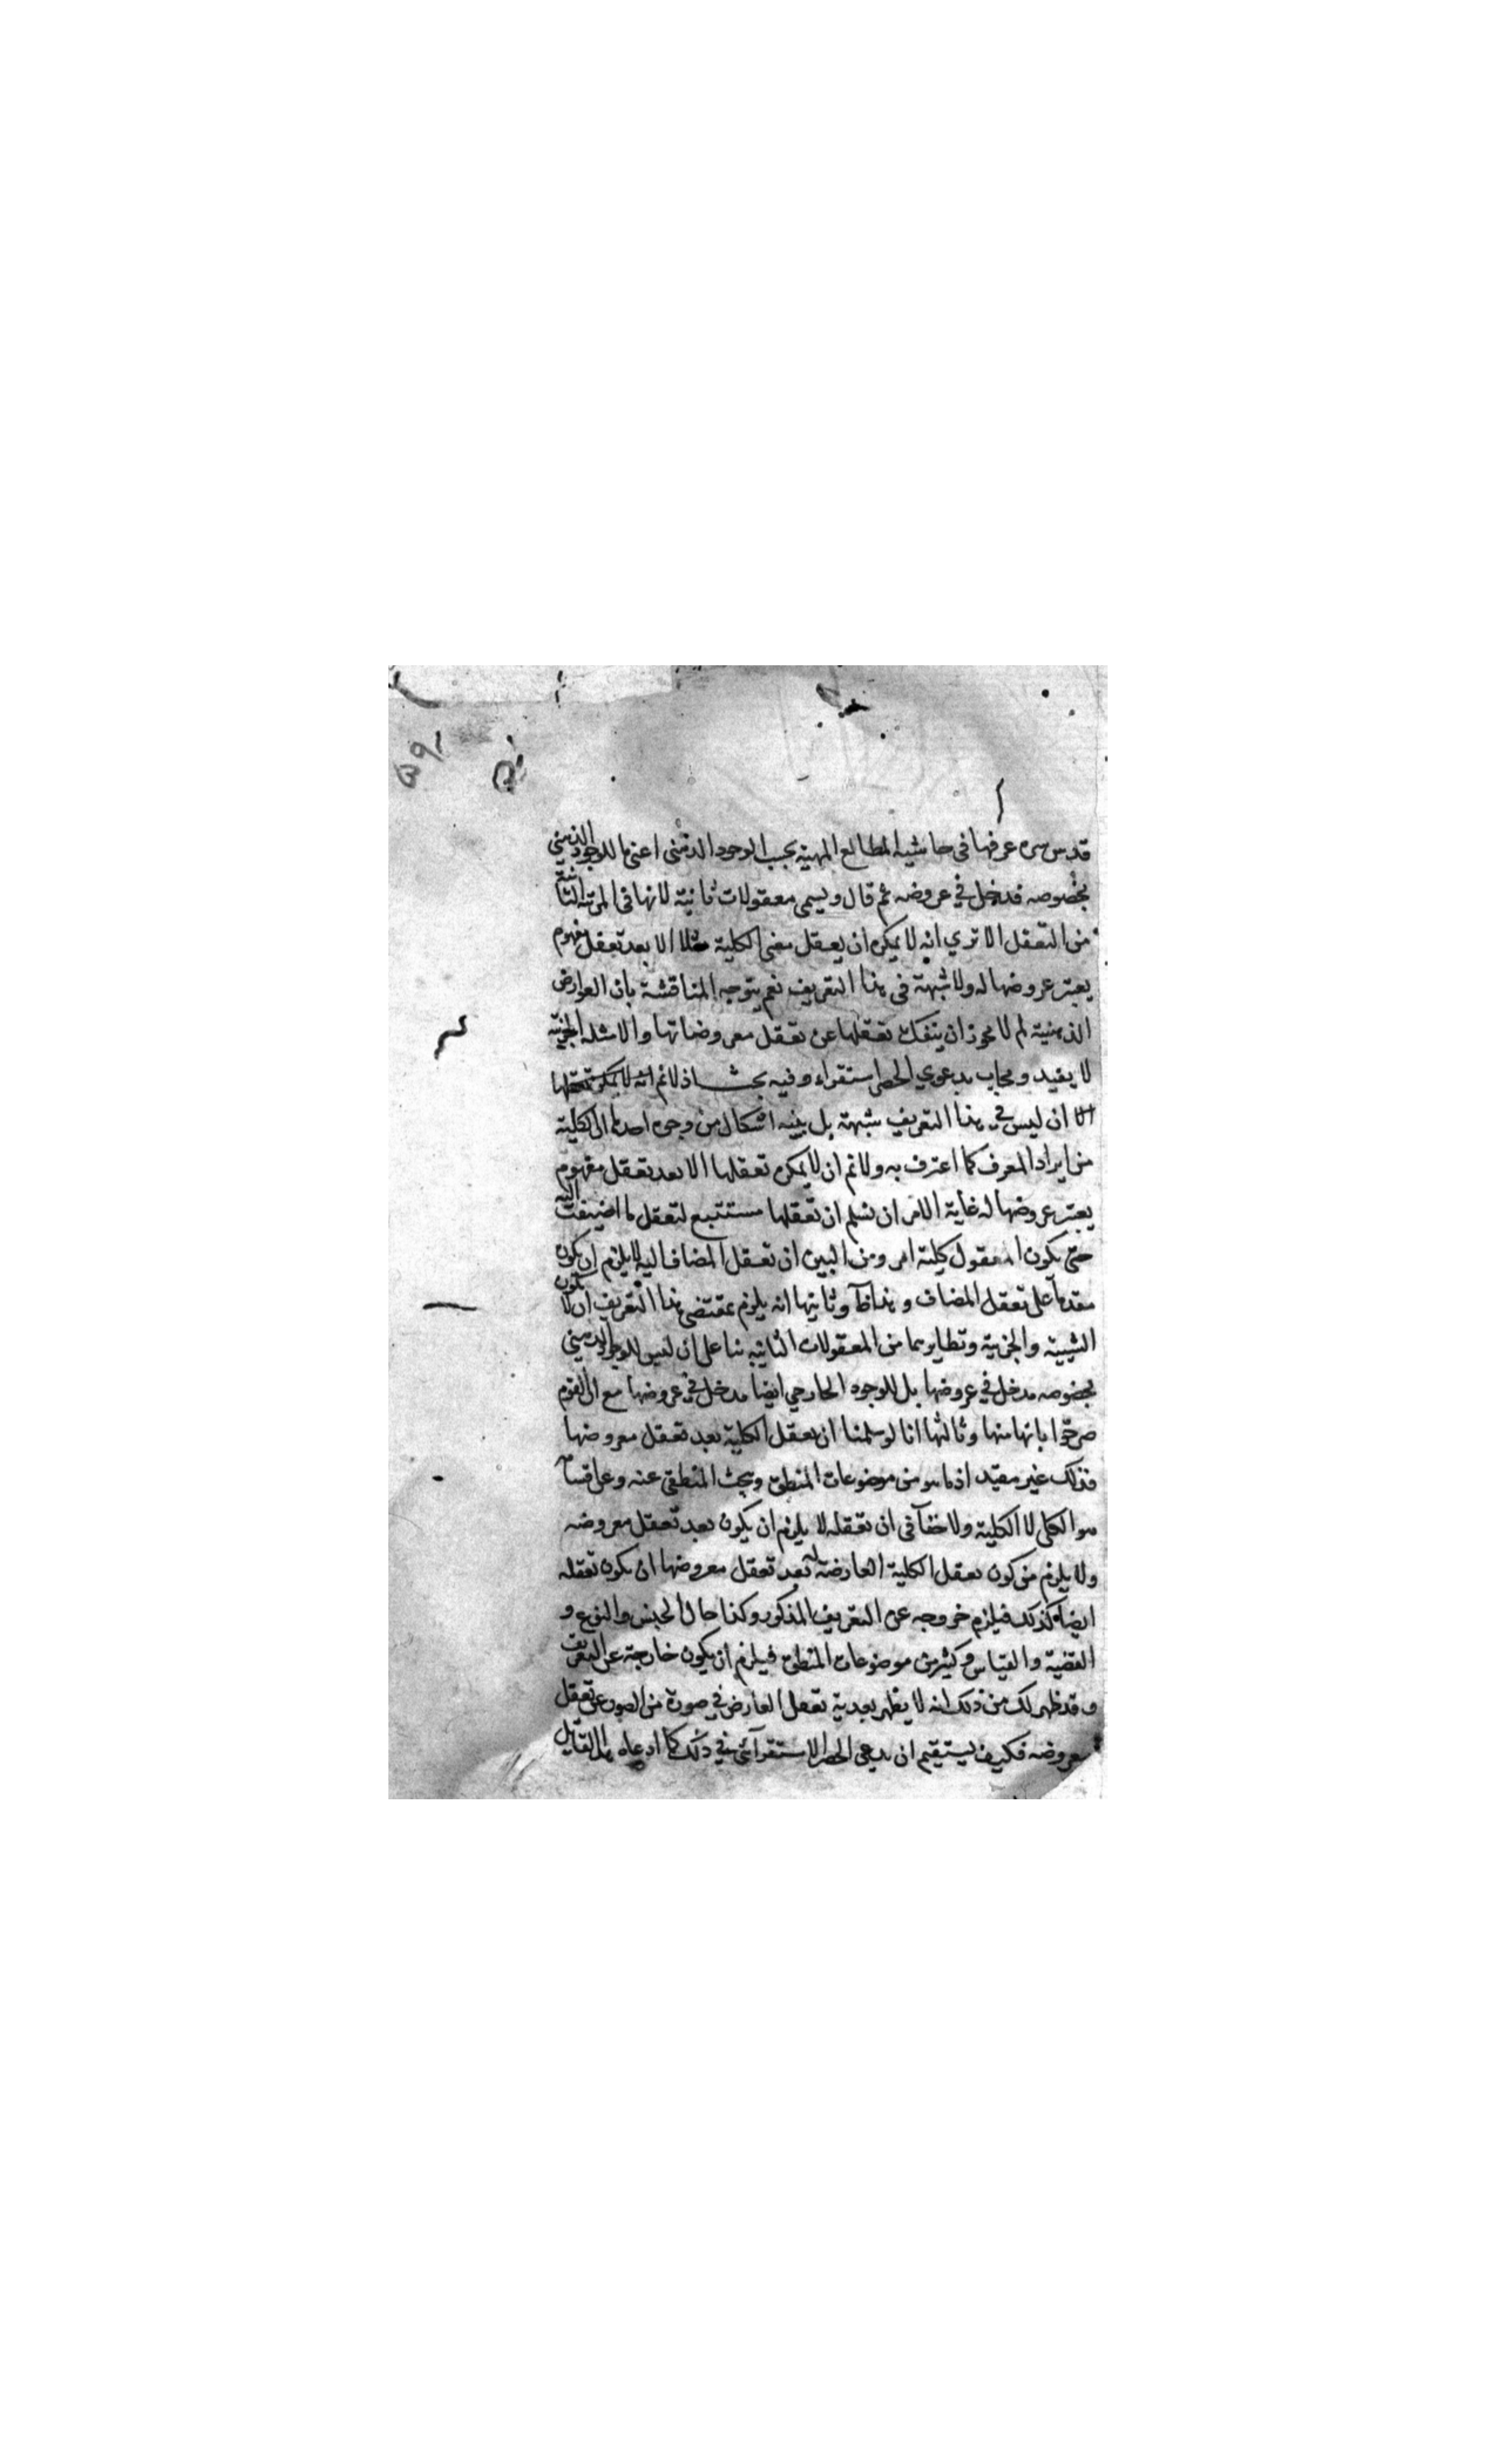 قدس سره عرفها في حاشية المطالع المهية بحسب الوجود الذهني اعني ما للوجود الذهني
بخصوصه مدخل في عروضه ثم قال ويسمى معقولات ثانية لانها في المرتبة الثانية
من التعقل الا تري انه لا يمكن ان يعقل معنى الكلية مثلا الا بعد تعقل مفهوم
يعتبر عروضها له ولا شبهة في هذا التعريف نعم يتوجه المناقشة بان العوارض
الذهنية لم لا يجوز ان ينفك تعقلها عن تعقل معروضاتها والامثلة الجزئية
لا يفيد ويجاب بدعوي الحصر استقراء وفيه بحث اذ لانم انه لا يمكن تعقلها
الا ان ليس في هذا التعريف شبهة بل فيه اشكال من وجوه احدها ان الكلية
من ايراد المعرف كما اعترف به ولانم ان لا يمكن تعقلها الا بعد تعقل مفهوم
يعتبر عروضها له غاية الامر ان نسلم ان تعقلها مستتبع لتعقل ما اضيفت اليه
حتى يكون المعقول كلية امر ومن البين ان تعقل المضاف اليه لا يلزم ان يكون
مقدما على تعقل المضاف وهذا ظ وثانيها انه يلزم بمقتضى هذا التعريف ان لا تكون
الشيئية والجزئية ونظايرهما من المعقولات الثانيه بنا على ان ليس للوجود الذهني
بخصوصه مدخل في عروضها بل للوجود الخارجي ايضا مدخل في عروضها مع ان القوم
صرحوا بانها منها وثالثها انا لو سلمنا ان تعقل الكلية بعد تعقل معروضها
فذلك غير مفيد اذ ما هو من موضوعات المنطق ويبحث المنطقي عنه وعن اقسامه
هو الكلي لا الكلية ولا خفآ في ان تعقله لا يلزم ان يكون بعد تعقل معروضه
ولا يلزم من كون تعقل الكلية العارضة له بعد تعقل معروضها ان يكون تعقله
ايضا كذلك فيلزم خروجه عن التعريف المذكور وكذا حال الجنس والنوع و
القضية والقياس وكثير من موضوعات المنطق فيلزم ان يكون خارجة عن التعريف
وقد ظهر لك من ذلك انه لا يظهر بعدية تعقل العارض في صورة من الصور عن تعقل
معروضه فكيف يستقيم ان يدعي الحصر الاستقرآئي في ذلك كما ادعاه هذا القايل